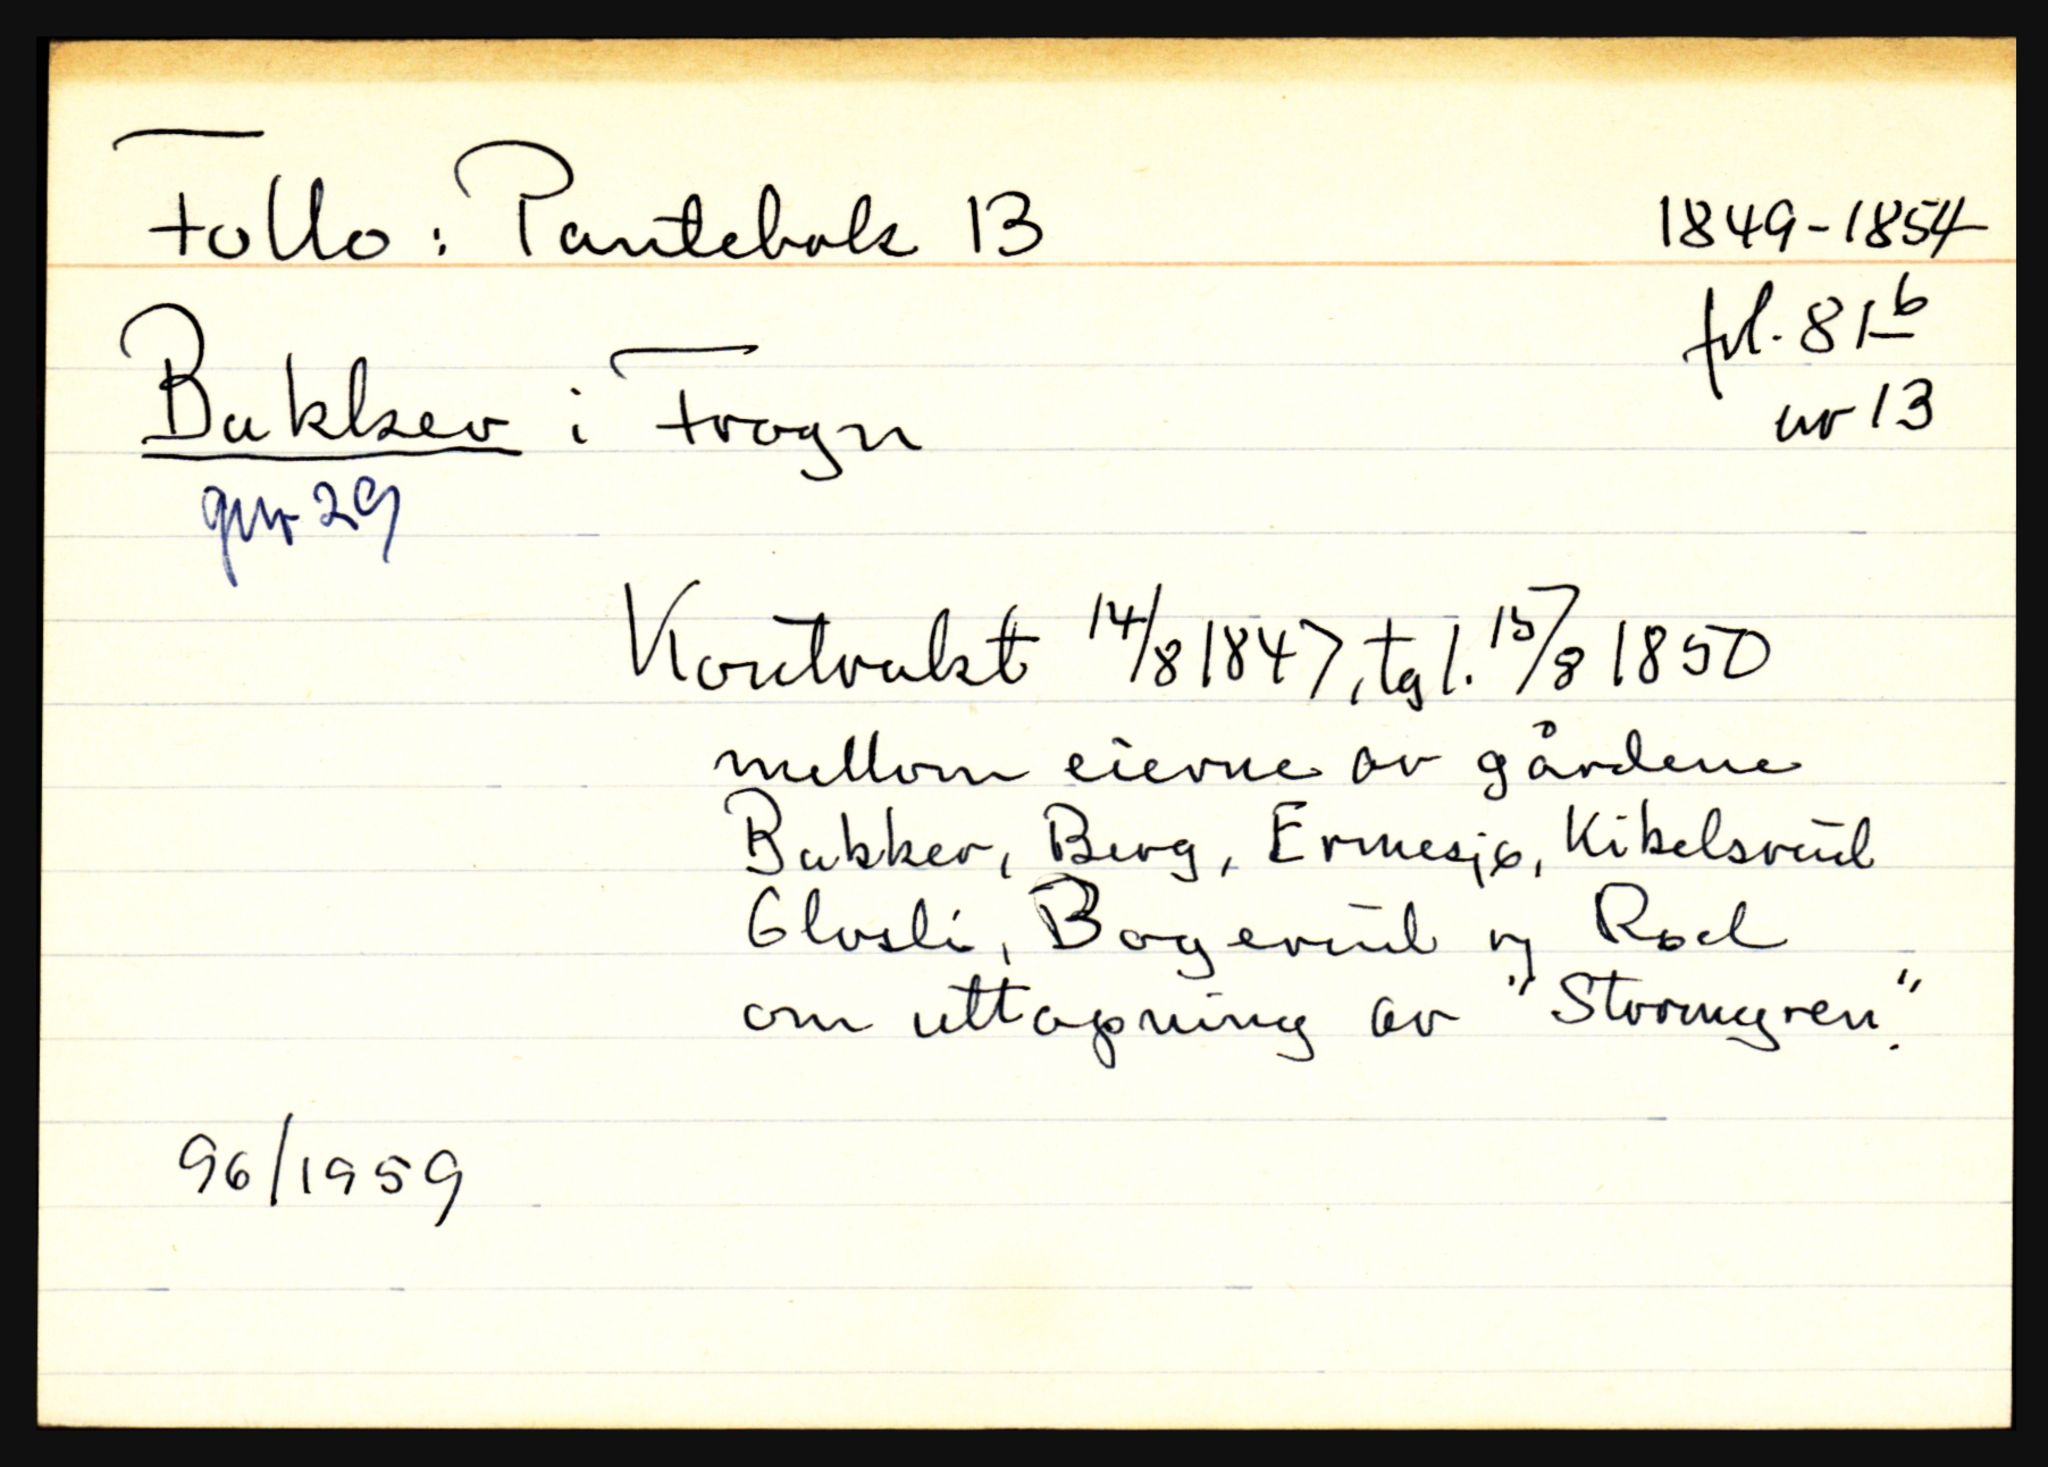 Follo: Pantebok 13 1849-1854
fol. 81b
Bakker i Frogn nr 13
gnr 29
Kontrakt 14/8 1847, tgl. 15/8 1850
mellom eierne av gårdene
Bakker, Berg, Ermesjø, Kikelsrud
Glosli, Bagerud og Rød
om uttapning av "Stormyren".
96/1959